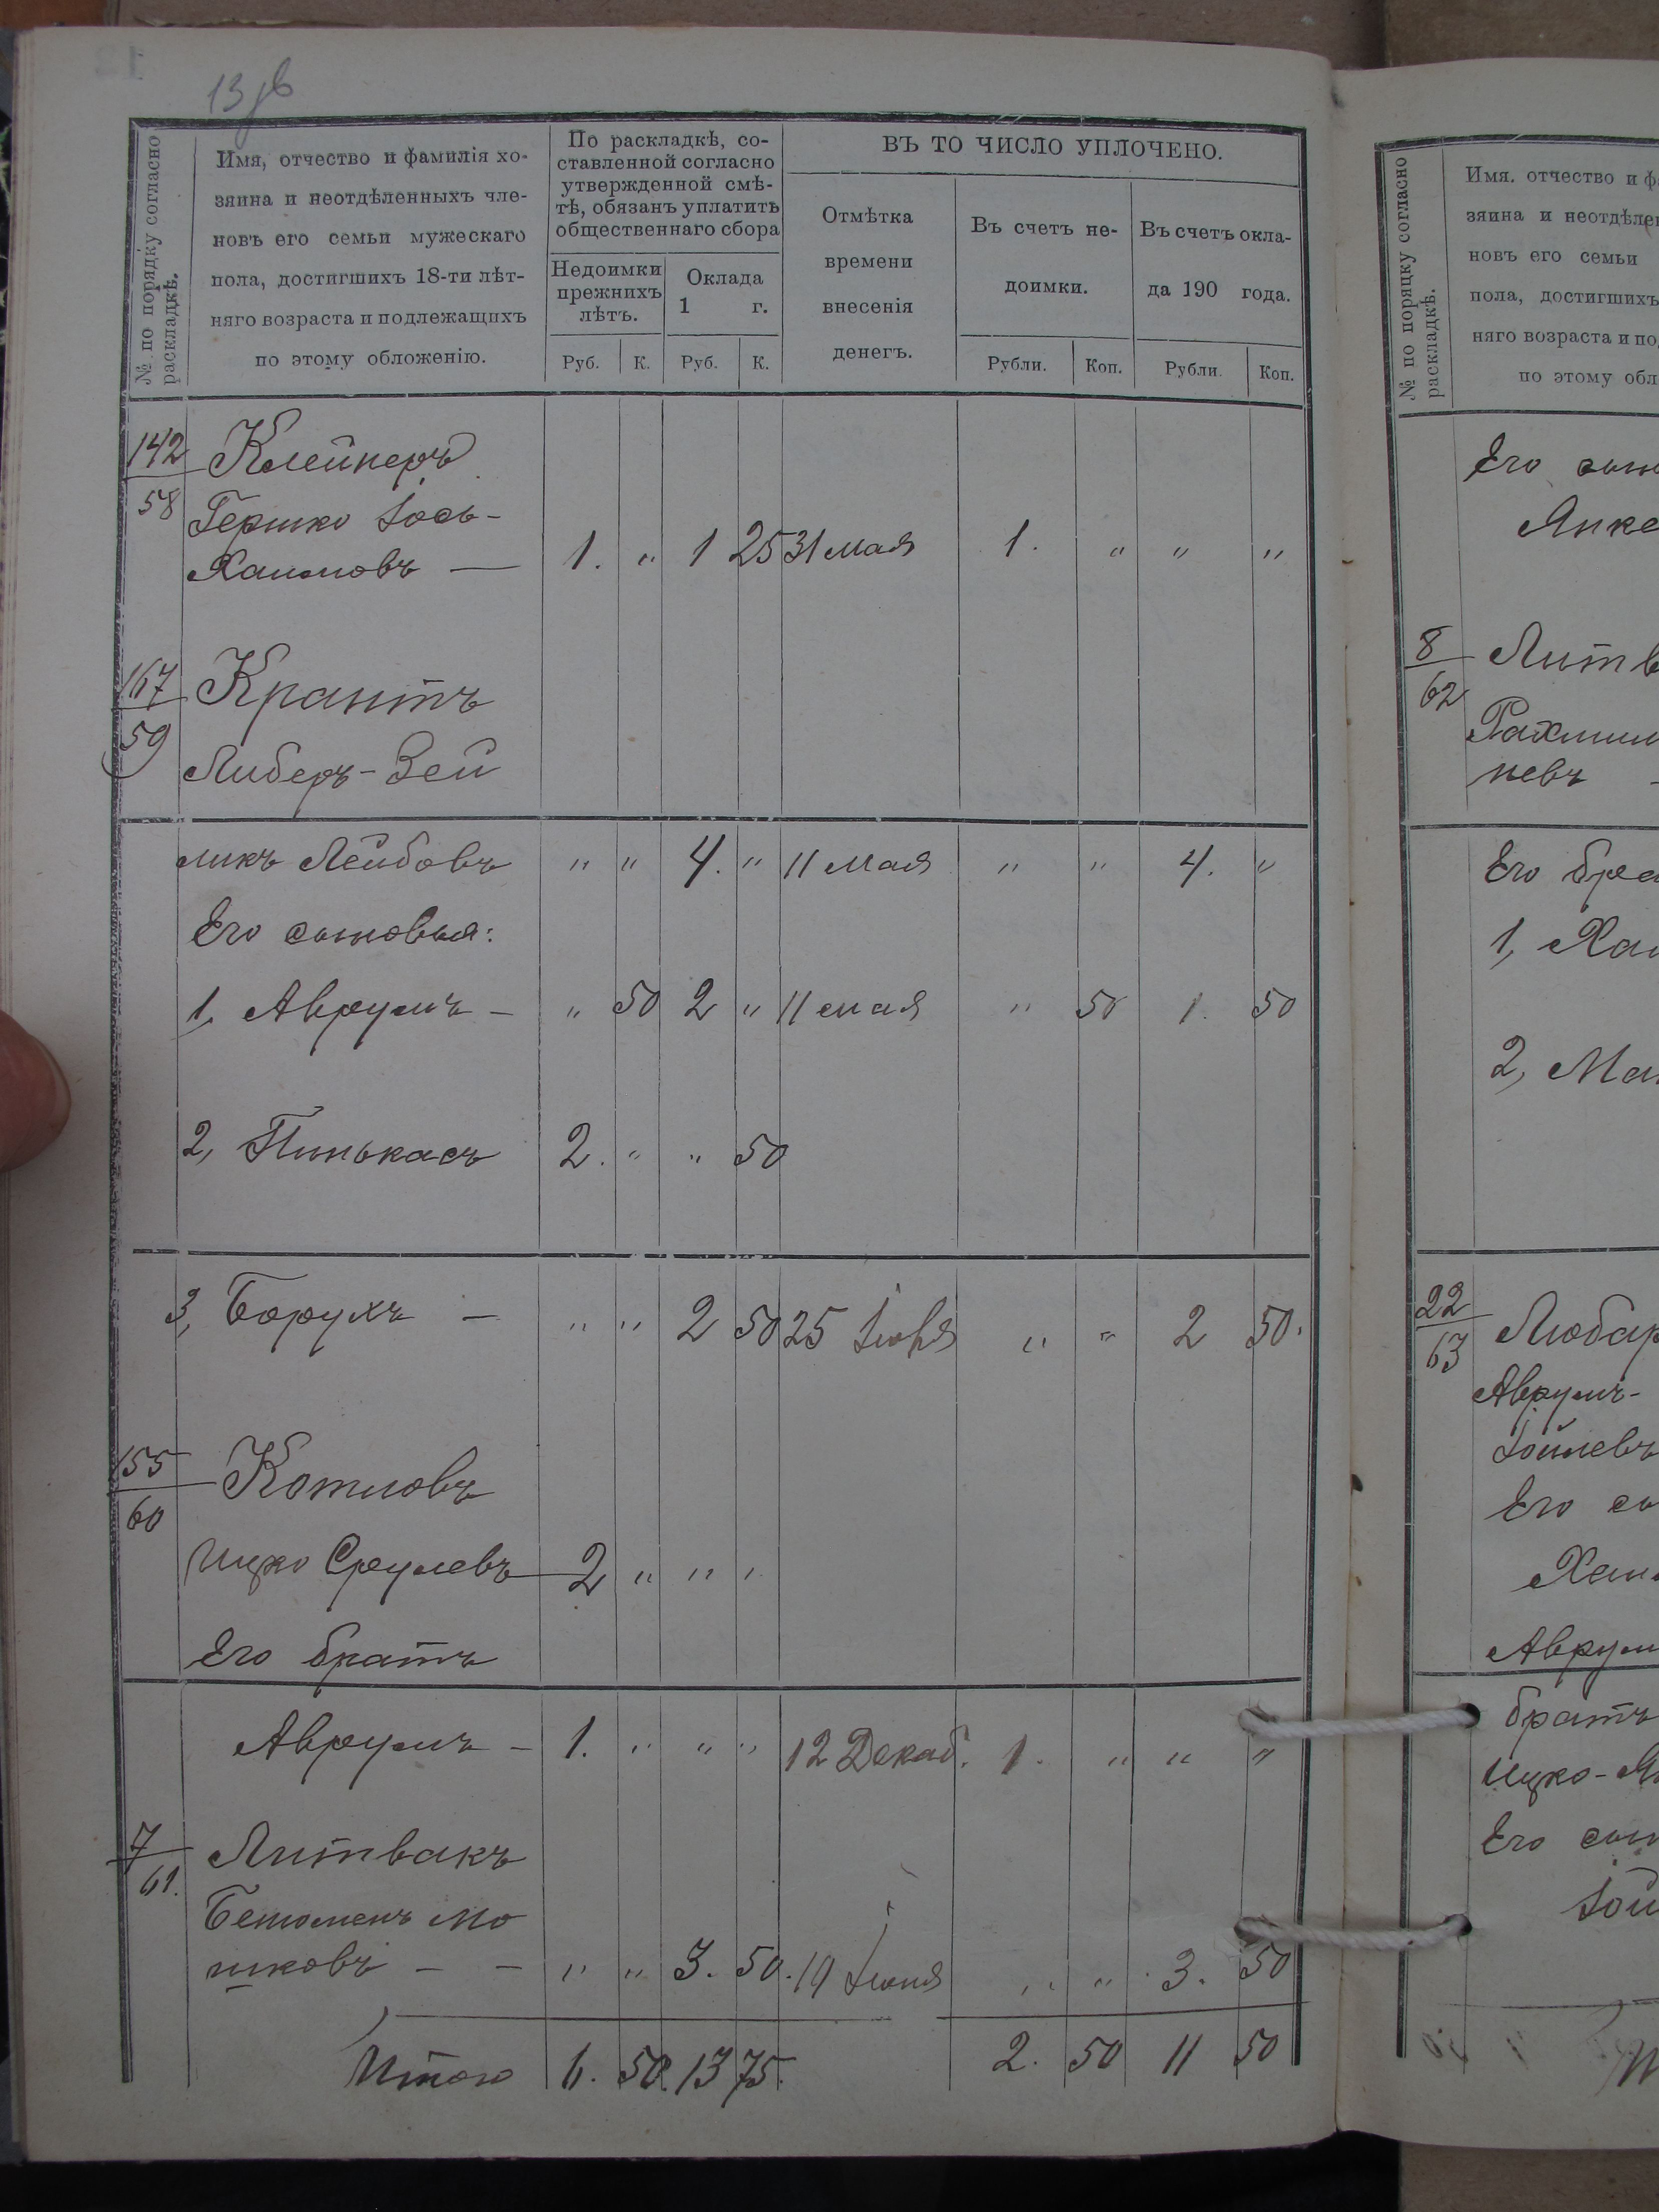 13 зв
№ по порядку согласно
раскладкѣ.
Имя, отчество и фамилія хо-
зяина и неотдѣленныхъ чле-
новъ его семьи мужескаго
пола, достигшихъ 18-ти лѣт-
няго возраста и подлежащихъ
по этому обложенію.
По раскладкѣ, со-
ставленной согласно
утвержденной смѣ-
тѣ, обязанъ уплатить
общественнаго сбора
Недоимки
прежнихъ
лѣтъ.
Оклада
1 г.
ВЪ ТО ЧИСЛО УПЛОЧЕНО.
Отмѣтка
времени
внесенія
денегъ.
Въ счетъ не-
доимки.
Въ счетъ окла-
да 190 года.
Руб. К. Руб. К. Рубли. Коп. Рубли. Коп.
142
58
Клейнеръ
Гершко Іось-
Хаимовъ — 1. " 1 25 31 мая 1. " " "
167
59
Крантъ
Либеръ-Зей
ликъ Лейбовъ " " 4. " 11 мая " " 4. "
Его сыновья:
1, Аврумъ - " 50 2 " 11 мая " 50 1. 50
2, Пинькасъ 2. " " 50
3, Борухъ - " " 2 50 25 Іюня " " 2 50.
155
60
Котловъ
Ицко Срулевъ 2 " " "
Его братъ
Аврумъ - 1. " " " 12 Декаб. 1. " " "
7
61.
Литвакъ
Мо
шковъ - - " " 3. 50. 19 Іюня " " 3. 50
Итого 6. 50. 13 75. 2. 50 11 50
№ по порядку согласно
раскладкѣ.
Имя. отчество и ф
зяина и неотдѣле
новъ его семьи
пола, достигшихъ
няго возраста и по
по этому обл
Его сын
Янке
8
62
Литв
Рахми
невъ -
Его бра
1, Хаи
2, Ма
22
63
Любар
Аврумъ-
Іойлевъ
Его сы
Хаи
Аврум
братъ
Ицко-Я
Его сын
Іой